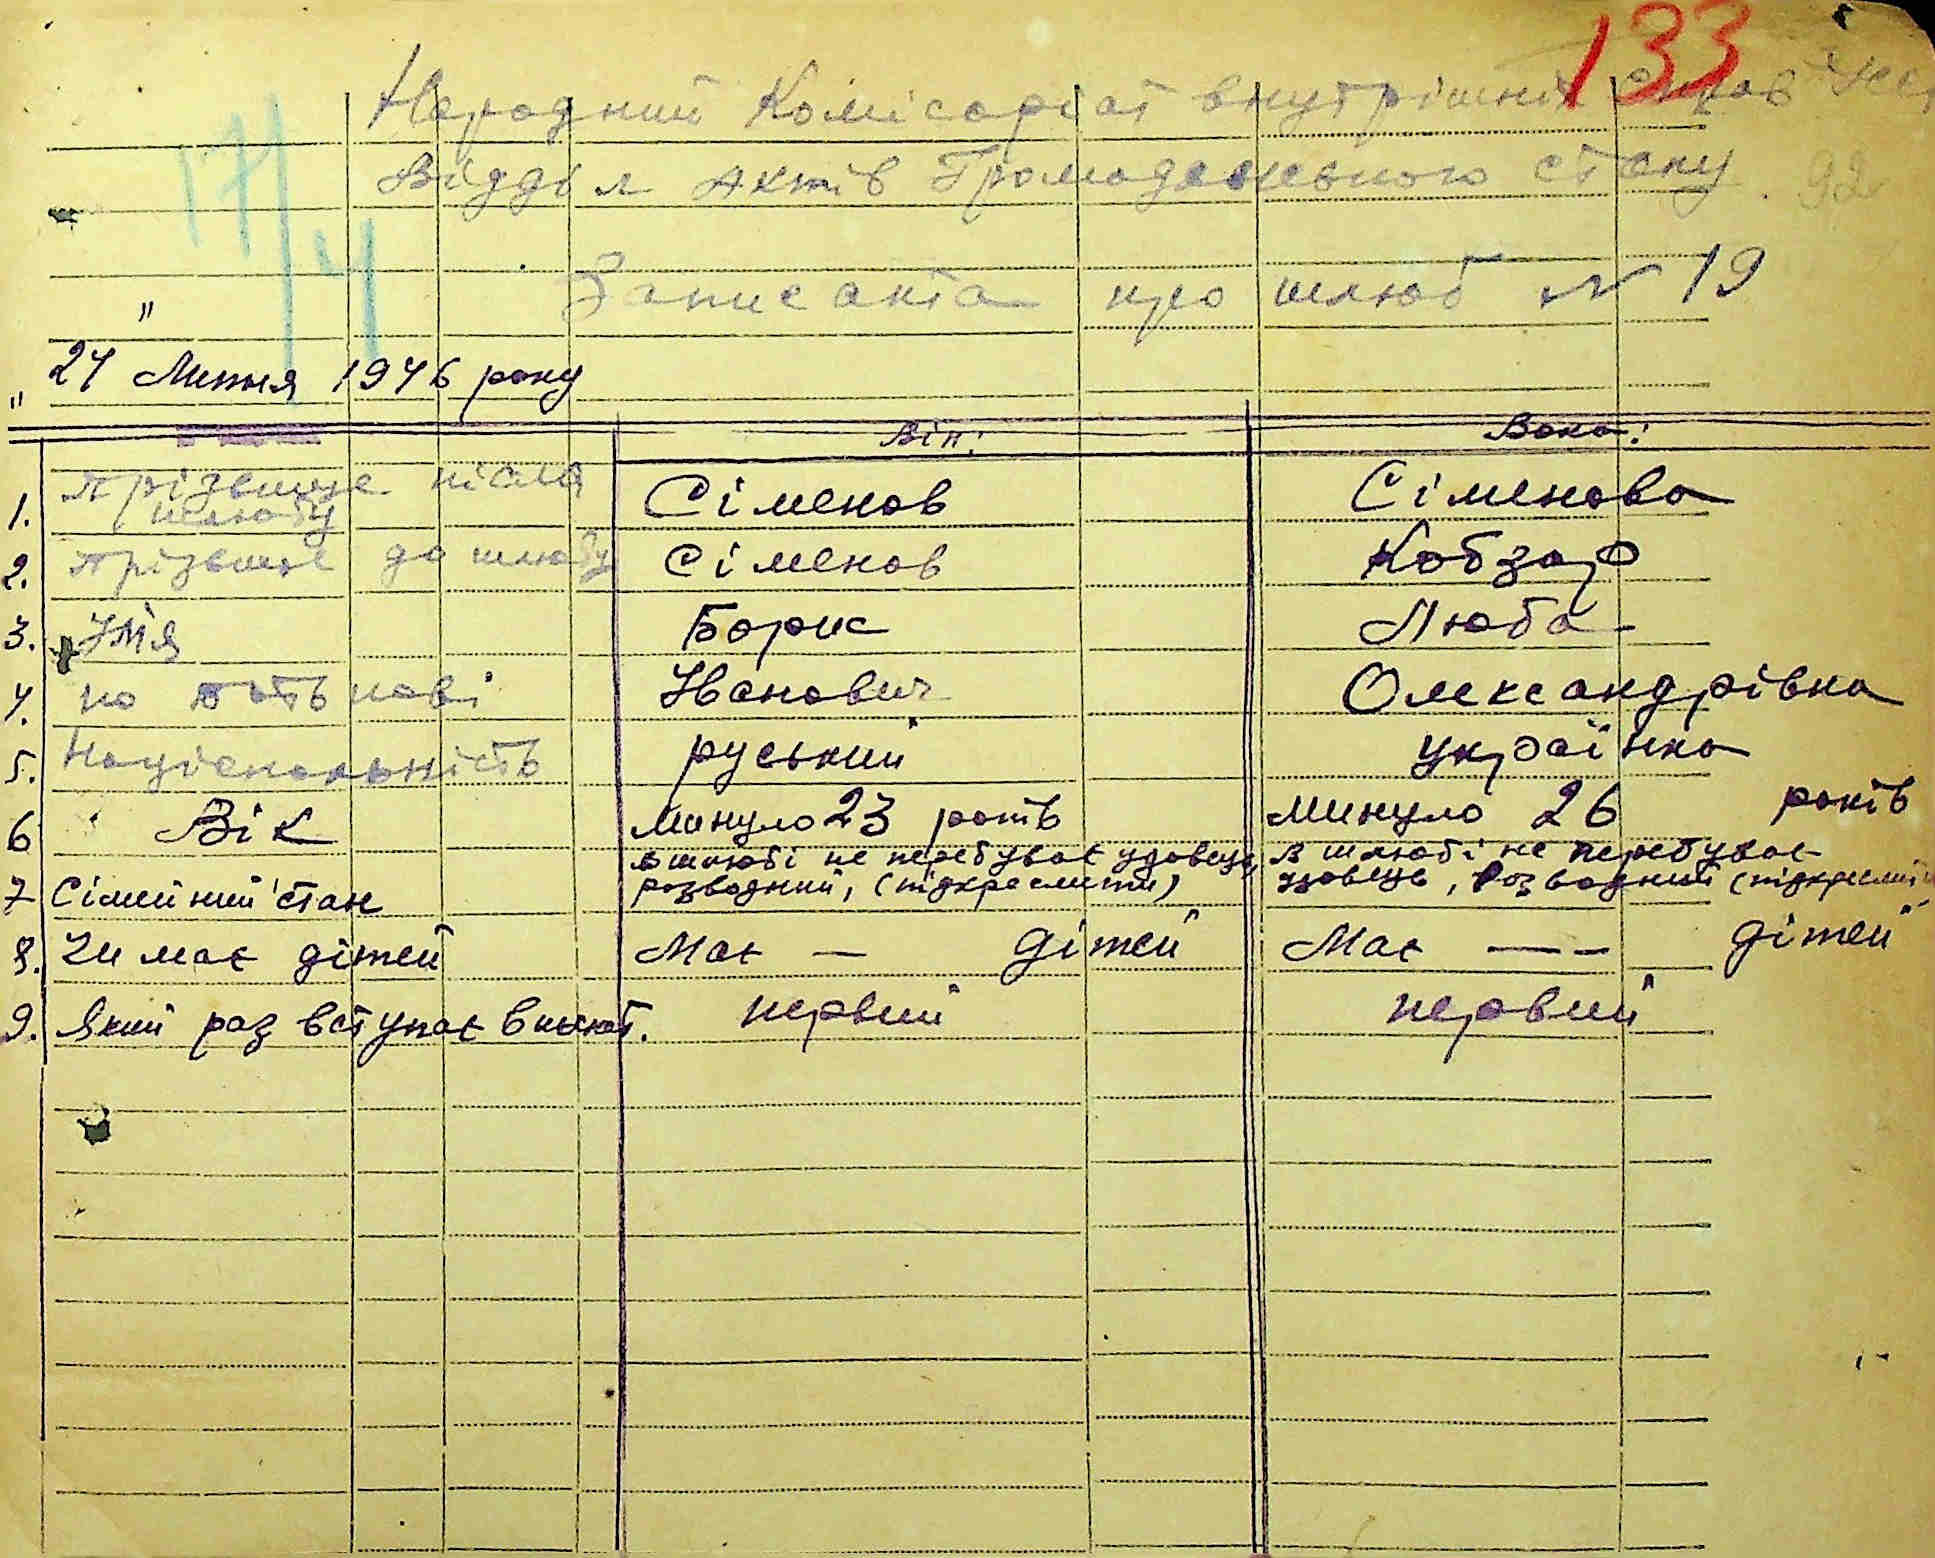 133
Народний Комісаріат внутрішніх справ
Відділ Актів Громадського стану. 92
17/4
Запис акта про шлюб N 19
"
" 24 Липня 1946 року
Він: Вона:
1. прізвище після шлюбу Сіменов Сіменова
2. прізвище до шлюбу Сіменов Кобзар
3. Імя Борис Люба
4. по батькові Іванович Олександрівна
5. Національність руський українка
6 Вік минуло 23 років минуло 26 років
7 Сімейний стан в шлюбі не перебував удовець, розводний, (підкреслити) в шлюбі не перебував удовець, розводний (підкреслити
8. Чи має дітей Має — дітей Має — — дітей
9. Який раз вступає в шлюб. первий первий